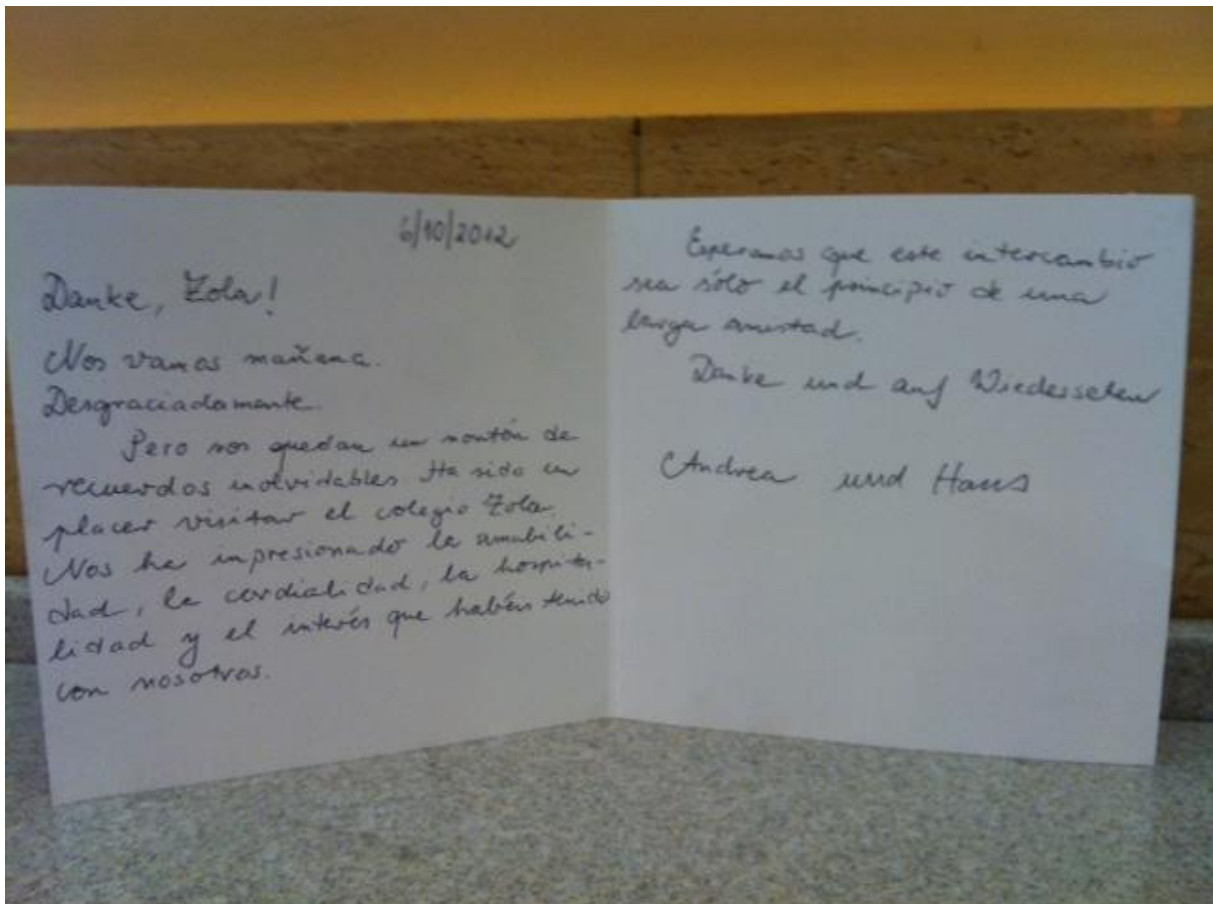 6/10/2012
Danke, Zola!
Nos vamos mañana.
Desgraciadamente.
Pero nos quedan un montón de
recuerdos inolvidables. Ha sido un
placer visitar el colegio Zola.
Nos ha impresionado la amabili-
dad, la cordialidad, la hospita-
lidad y el interés que habéis tenido
con nosotros.
Esperamos que este intercambio
sea sólo el principio de una
larga amistad.
Danke und auf Wiedersehen
Andrea und Hans